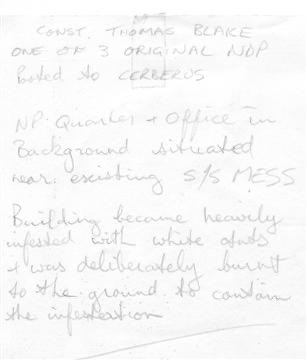 CONST. THOMAS BLAKE
ONE OF 3 ORIGINAL NDP
Posted to CERBERUS
NP. Quarter + Office in
Background situated
near existing S/S MESS
Building became heavily
infested with white ants
+ was deliberately burnt
to the ground to contain
the infestation